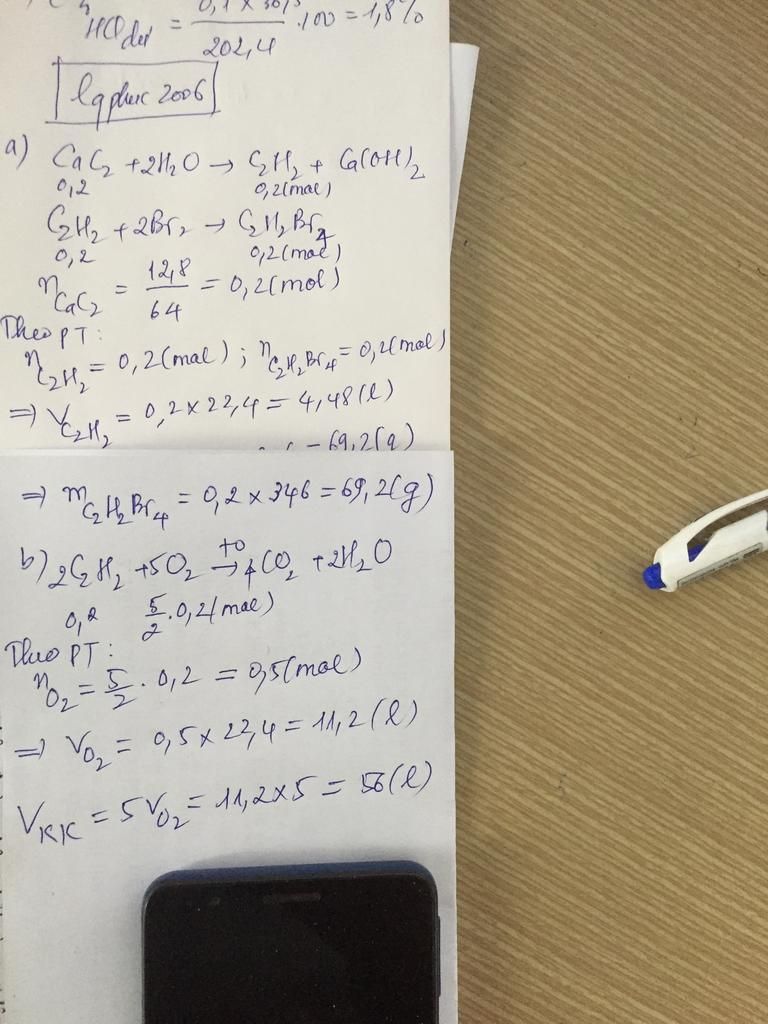 HCl dư = 0,1 x 36,5 / 202,4 . 100 = 1,8%
lqphuc 2006
a) CaC2 + 2H2O → C2H2 + Ca(OH)2
0,2 0,2(mol)
C2H2 + 2Br2 → C2H2Br4
0,2 0,2(mol)
nCaC2 = 12,8 / 64 = 0,2(mol)
Theo PT:
nC2H2 = 0,2(mol) ; nC2H2Br4 = 0,2(mol)
=> VC2H2 = 0,2 x 22,4 = 4,48(l)
= 69,2(g)
=> mC2H2Br4 = 0,2 x 346 = 69,2(g)
b) 2C2H2 + 5O2 →to 4CO2 + 2H2O
0,2 5/2 . 0,2(mol)
Theo PT:
nO2 = 5/2 . 0,2 = 0,5(mol)
=> VO2 = 0,5 x 22,4 = 11,2(l)
VKK = 5VO2 = 11,2 x 5 = 56(l)